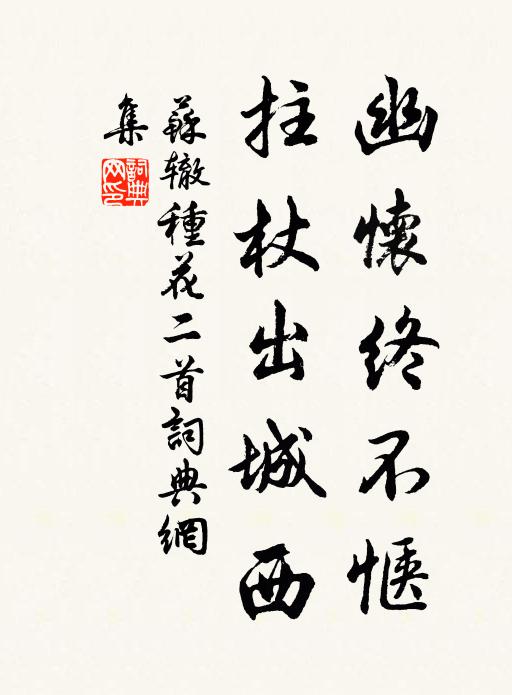 幽懷終不愜
拄杖出城西
蘇辙種花二首詞典網
集
詞典
网印